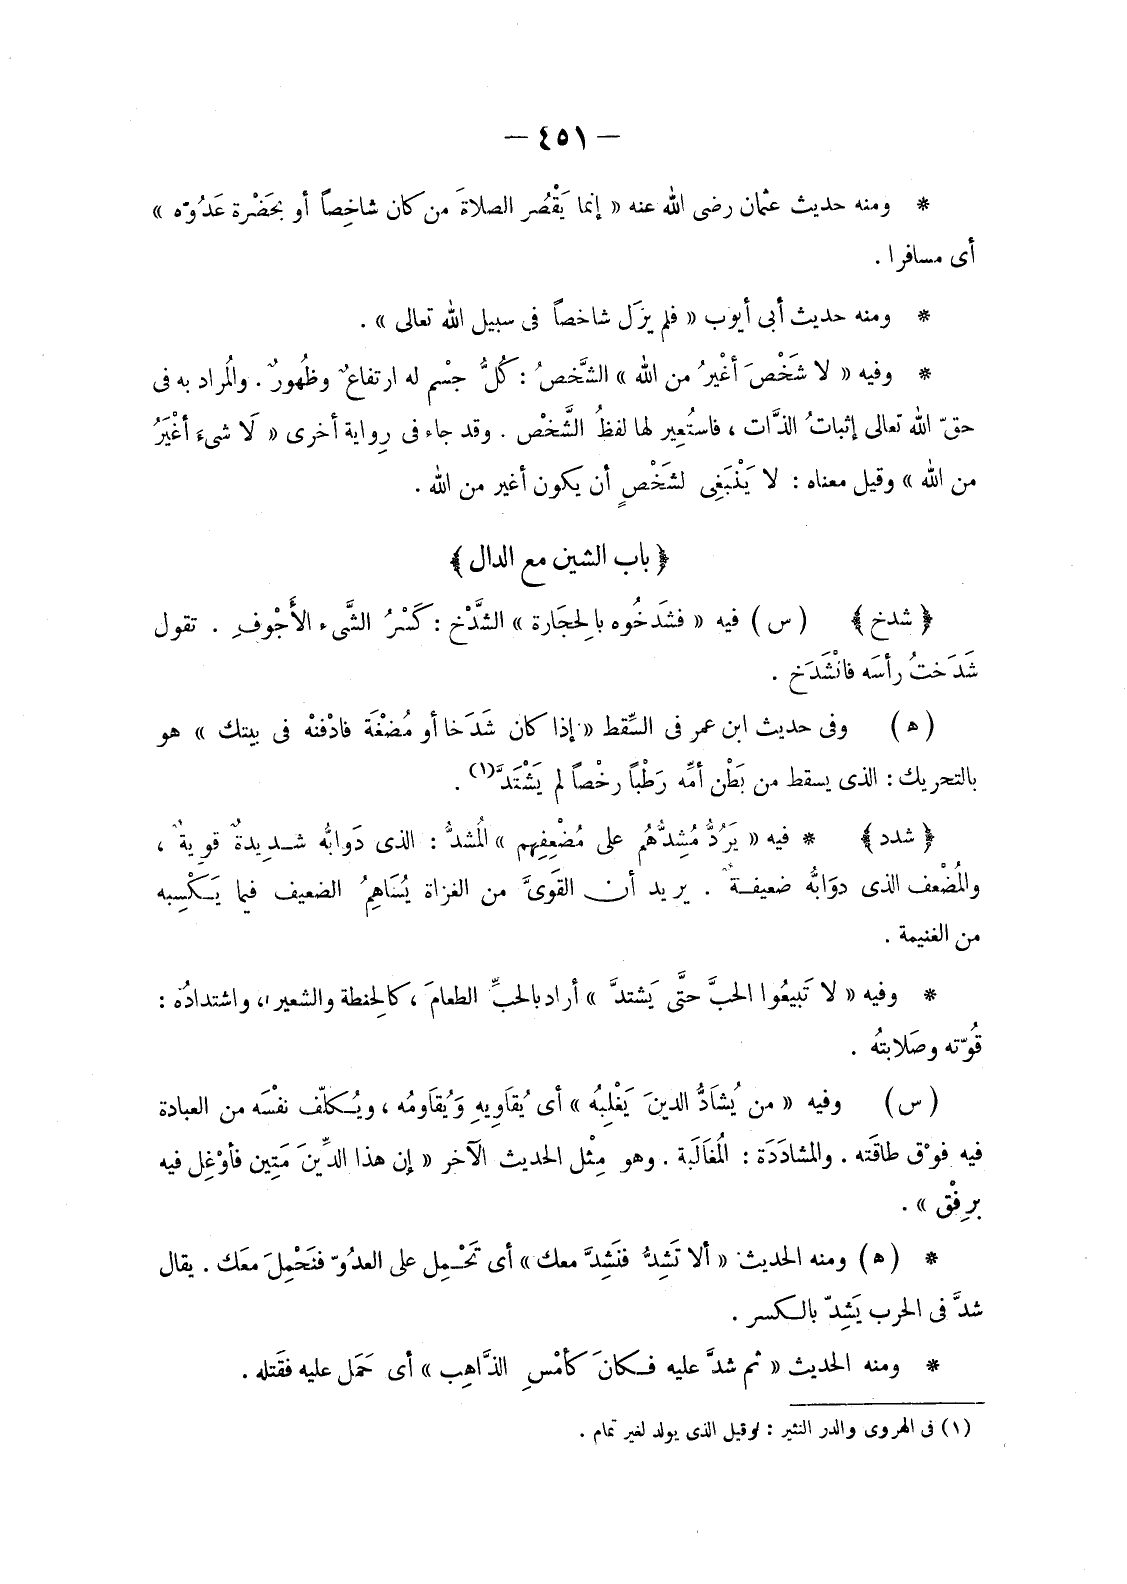 — ٤٥١ —
* ومنه حديث عثمان رضى الله عنه « إنما يَقْصُر الصلاةَ من كان شاخِصاً أو بحَضْرة عَدُوّه »
أى مسافرا .
* ومنه حديث أبى أيوب « فلم يزَل شاخصاً فى سبيل الله تعالى » .
* وفيه « لا شَخْصَ أغْيرُ من الله » الشَّخصُ : كُلُّ جسْم له ارتفاعٌ وظُهورٌ . والُمراد به فى
حقّ الله تعالى إثباتُ الذَّات ، فاستُعِير لها لفظُ الشَّخْص . وقد جاء فى رِواية أخرى « لَا شىءَ أغْيَرُ
من الله » وقيل معناه : لا يَنْبَغِى لشَخْصٍ أن يكون أغير من الله .
﴿ باب الشين مع الدال ﴾
﴿ شدخ ﴾ (س) فيه « فشَدخُوه بالحِجَارة » الشَّدْخ : كَسْرُ الشَّىء الأَجْوفِ . تقول
شَدَختُ رأسَه فانْشَدَخ .
(ه) وفى حديث ابن عمر فى السِّقط « إذا كان شَدَخا أو مُضْغَة فادْفنْه فى بيتك » هو
بالتحريك : الذى يسقط من بَطْن أمِّه رَطْباً رخْصاً لم يَشْتَدَّ(١) .
﴿ شدد ﴾ * فيه « يَرُدُّ مُشِدُّهُم على مُضْعِفِهم » الُمشدُّ : الذى دَوابُّه شديدةٌ قوِيةٌ ،
والُمضْعف الذى دوَابُّه ضعيفةٌ . يريد أن القَوىَّ من الغزاة يُسَاهِمُ الضعيف فيما يَكْسِبه
من الغنيمة .
* وفيه « لا تَبيعُوا الحبَّ حتَّى يَشتدَّ » أراد بالحبِّ الطعامَ ، كالحنطة والشعير ، واشتدادُه :
قُوّته وصَلابتُه .
(س) وفيه « من يُشادُّ الدينَ يَغْلِبُه » أى يُقاوِيهِ وَيُقَاوِمُه ، ويُكلّف نفْسَه من العبادة
فيه فوْق طاقَته . والمشادَدَة : الُمغَالَبة . وهو مِثْل الحديث الآخر « إن هذا الدِّينَ مَتِين فأوْغِل فيه
برِفْق » .
* (ه) ومنه الحديث « ألا تَشِدُّ فنَشِدَّ معك » أى تَحْمِل على العدُوّ فنَحْمِلَ معَك . يقال
شدَّ فى الحرب يَشِدّ بالكسر .
* ومنه الحديث « ثم شدَّ عليه فكانَ كأمْسِ الذَّاهِب » أى حَمَل عليه فقَتله .
(١) فى الهروى والدر النثير : وقيل الذى يولد لغير تمام .